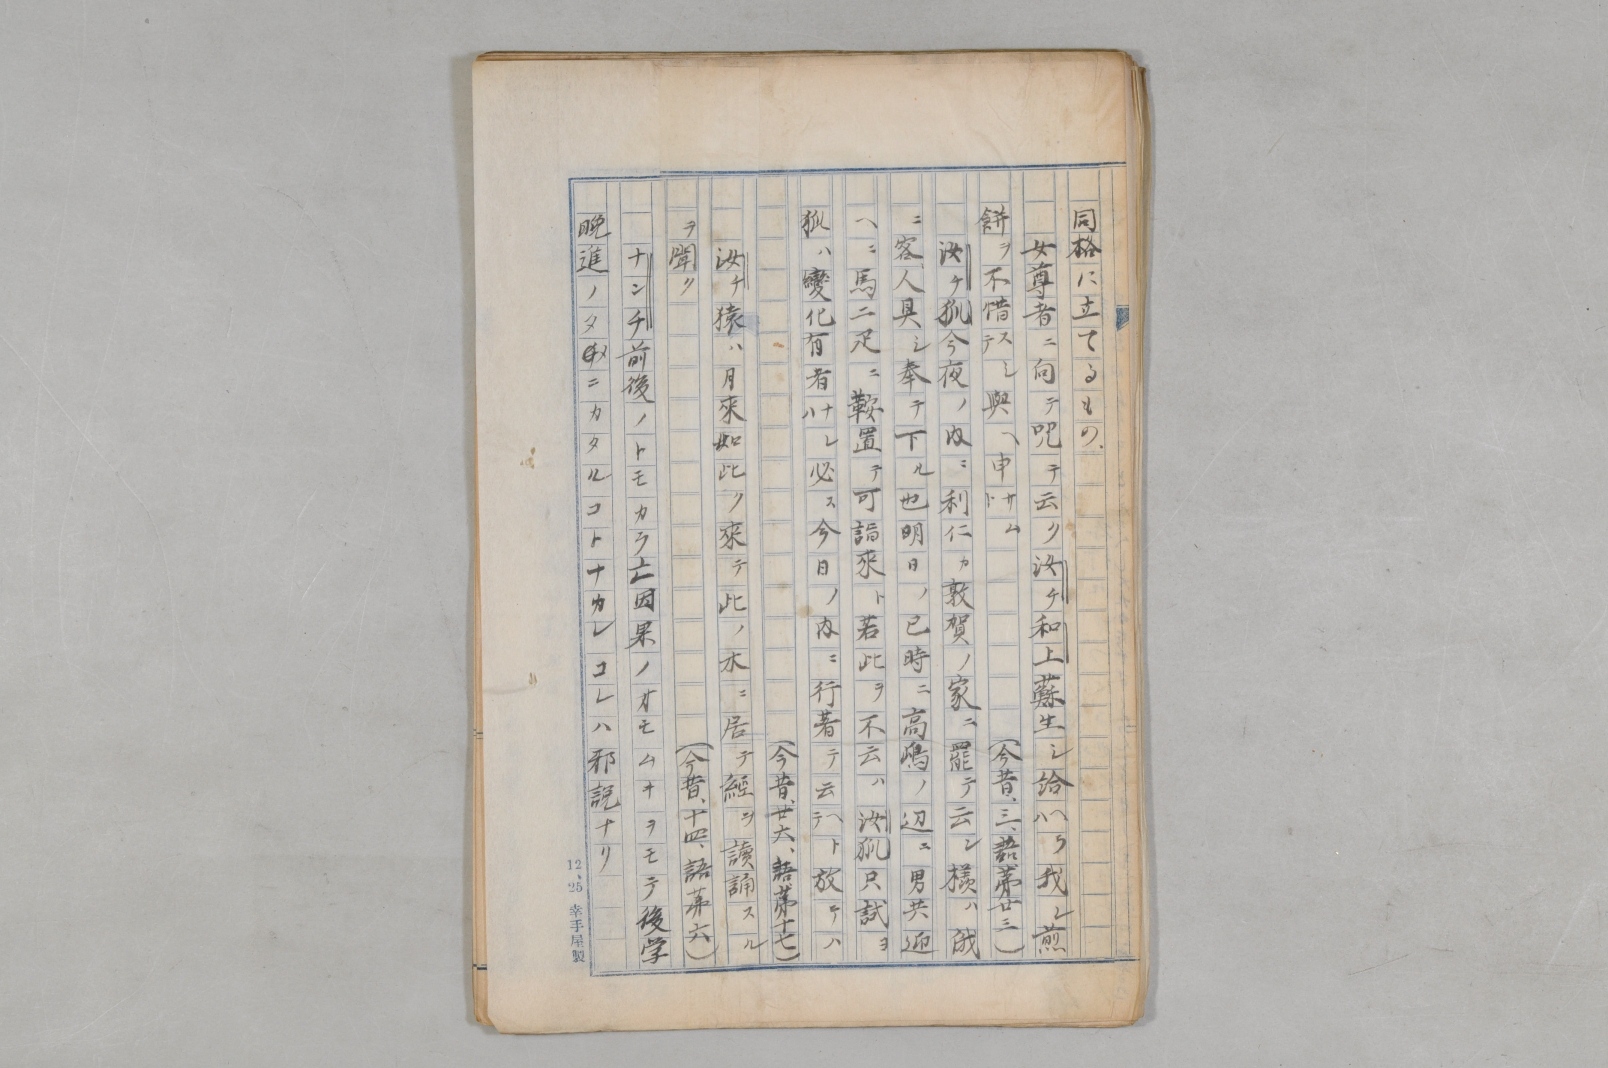 同格に立てるもの、
女尊者ニ向テ咒テ云ク汝チ和上蘇生シ給ヘラハ我レ煎
餅ヲ不惜スシテ與ヘ申サムト
（今昔、三、語苐廿三）
汝チ狐今夜ノ内ニ利仁カ敦賀ノ家ニ罷テ云シ様ハ俄
ニ客人具シ奉テ下ル也明日ノ巳時ニ高嶋ノ辺ニ男共迎
ヘニ馬二疋ニ鞍置テ可詣來ト若此ヲ不云ハ汝狐只試ヨ
狐ハ變化有者ナレハ必ス今日ノ内ニ行着テ云ヘテト放テハ
（今昔、廿六、語苐十七）
汝チ猿ハ月來如此ク來テ此ノ木ニ居テ經ヲ讀誦スル
ヲ聞ク
（今昔、十四、語苐六）
ナンチ前後ノトモカラ亡因果ノオモムキヲモテ後学
晩進ノタメニカタルコトナカレコレハ邪説ナリ
12、25 幸手屋製